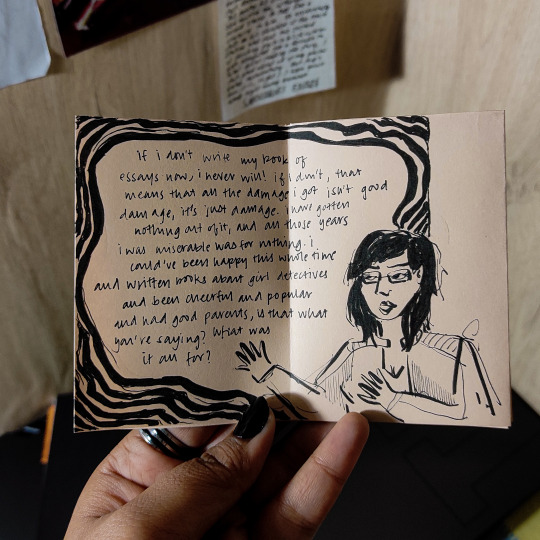 If i don't write my book of
essays now, i never will! if i don't, that
means that all the damage i got isn't good
damage, it's just damage. i have gotten
nothing out of it, and all those years
i was miserable was for nothing. i
could've been happy this whole time
and written books about girl detectives
and been cheerful and popular
and had good parents, is that what
you're saying? What was
it all for?